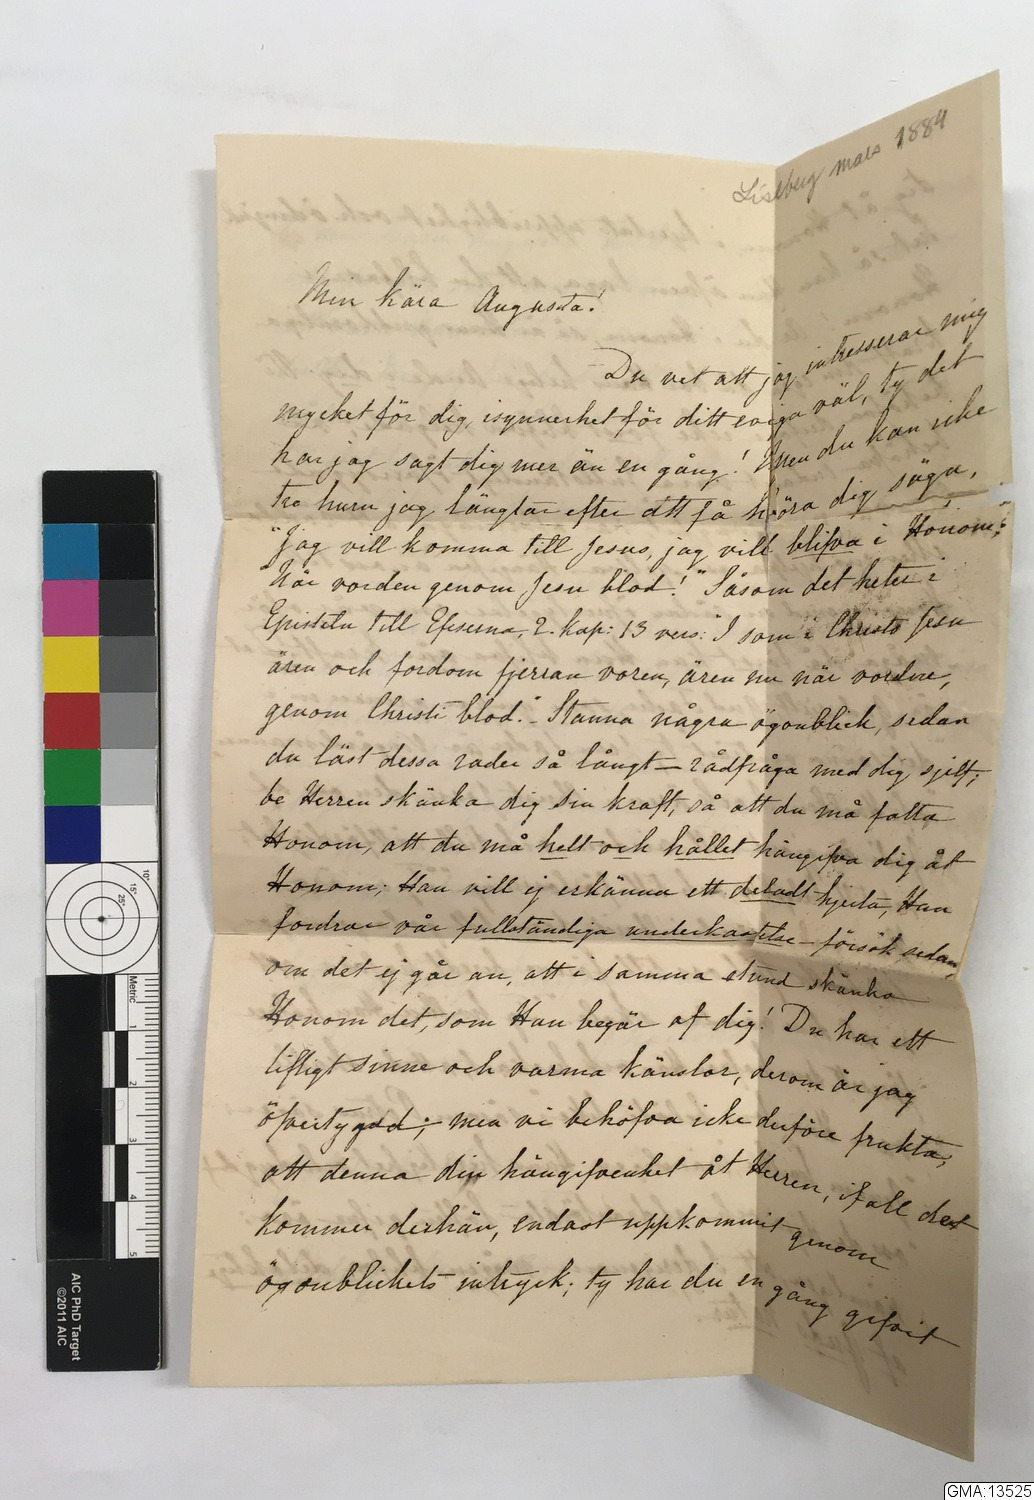 Liseberg mars 1884
Min kära Augusta!
Du vet att jag intresserar mig
mycket för dig, isynnerhet för ditt eviga väl, ty det
har jag sagt dig mer än en gång! Men du kan icke
tro huru jag längtar efter att få höra dig säga,
"Jag vill komma till Jesus, jag vill blifva i Honom;
"När vorden genom Jesu blod!" Såsom det heter i
Episteln till Efeserna, 2. kap: 13 vers: "I som i Christo Jesu
ären och fordom fjerran voren, ären nu när vordne,
genom Christi blod." - Stanna några ögonblick, sedan
du läst dessa rader så långt — rådfråga med dig sjelf;
be Herren skänka dig sin kraft, så att du må fatta
Honom, att du må helt och hållet hängifva dig åt
Honom; Han vill ej erkänna ett deladt hjerta, Han
fordrar vår fullständiga underkastelse - försök sedan,
om det ej går an, att i samma stund skänka
Honom det, som Han begär af dig! Du har ett
lifligt sinne och varma känslor, derom är jag
öfvertygad; men vi behöfva icke derföre frukta,
att denna din hängifvenhet åt Herren, ifall det
kommer derhän, endast uppkommit genom
ögonblickets intryck; ty har du en gång gifvit
AIC PhD Target
©2011 AIC
Metric
1
2
3
4
5
10°
15°
25°
GMA:13525